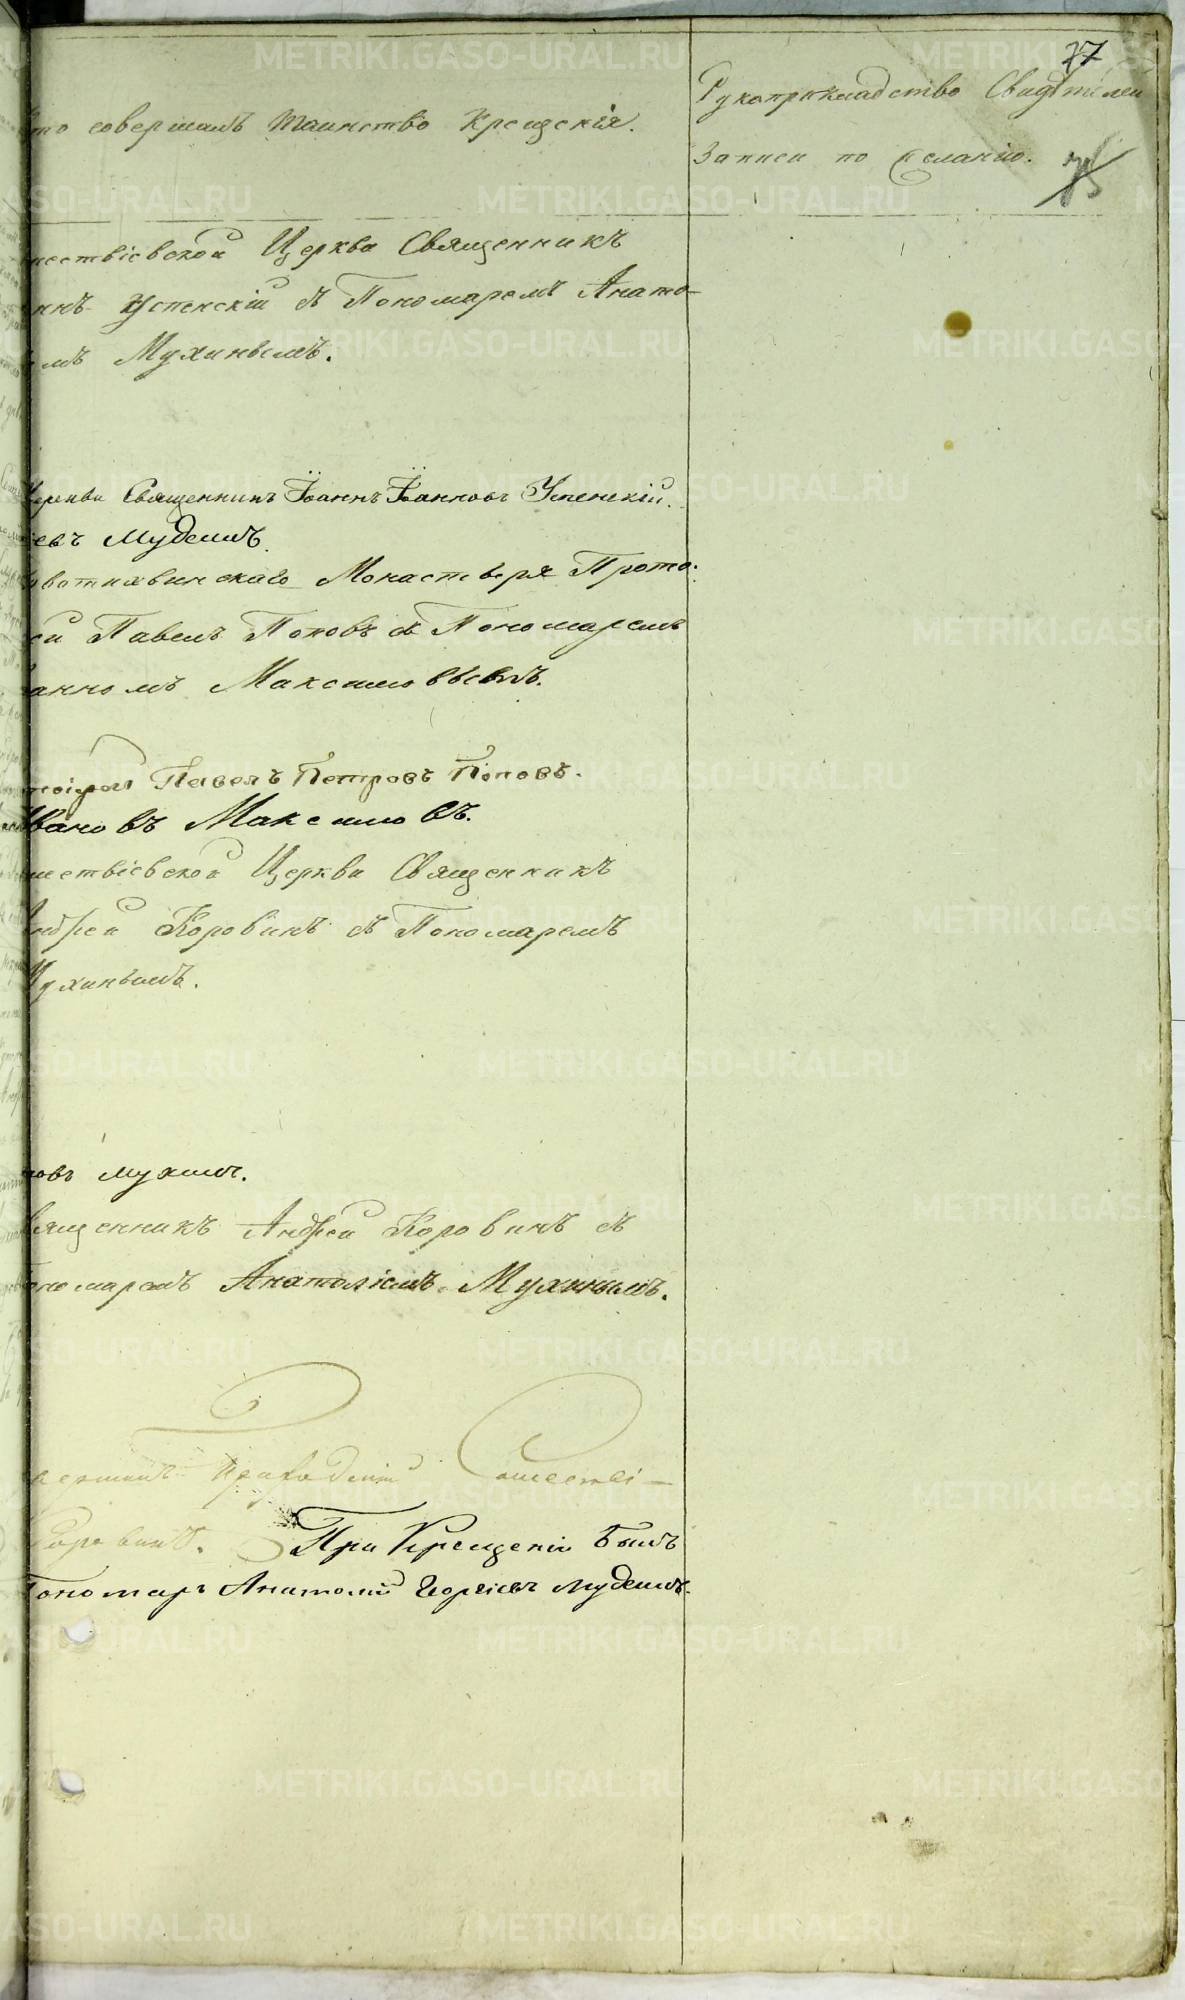 27
Рукоприкладство Свидѣтелей
то совершалъ таинство Крещенія.
Записи по желанію.
75
шествіевской Церкви Священникъ
ннъ Успенскій съ Пономаремъ Анато-
мъ Мухинымъ.
Церкви Священникъ Іоаннъ Іоанновъ Успенскій.
евъ Мухинъ.
отихвинскаго Монастыря Прото-
ей Павелъ Поповъ съ Пономаремъ
анномъ Максимовымъ.
тоіерей Павелъ Петровъ Поповъ.
Ивановъ Максимовъ.
шествіевской Церкви Священникъ
Андрей Коровинъ съ Пономаремъ
Мухинымъ.
Мухинъ.
Священникъ Андрей Коровинъ съ
Пономаремъ Анатоліемъ Мухинымъ.
Сошестві-
Коровинъ. При Крещеніи былъ
Пономарь Анатолій Георгіевъ Мухинъ.
METRIKI.GASO-URAL.RU